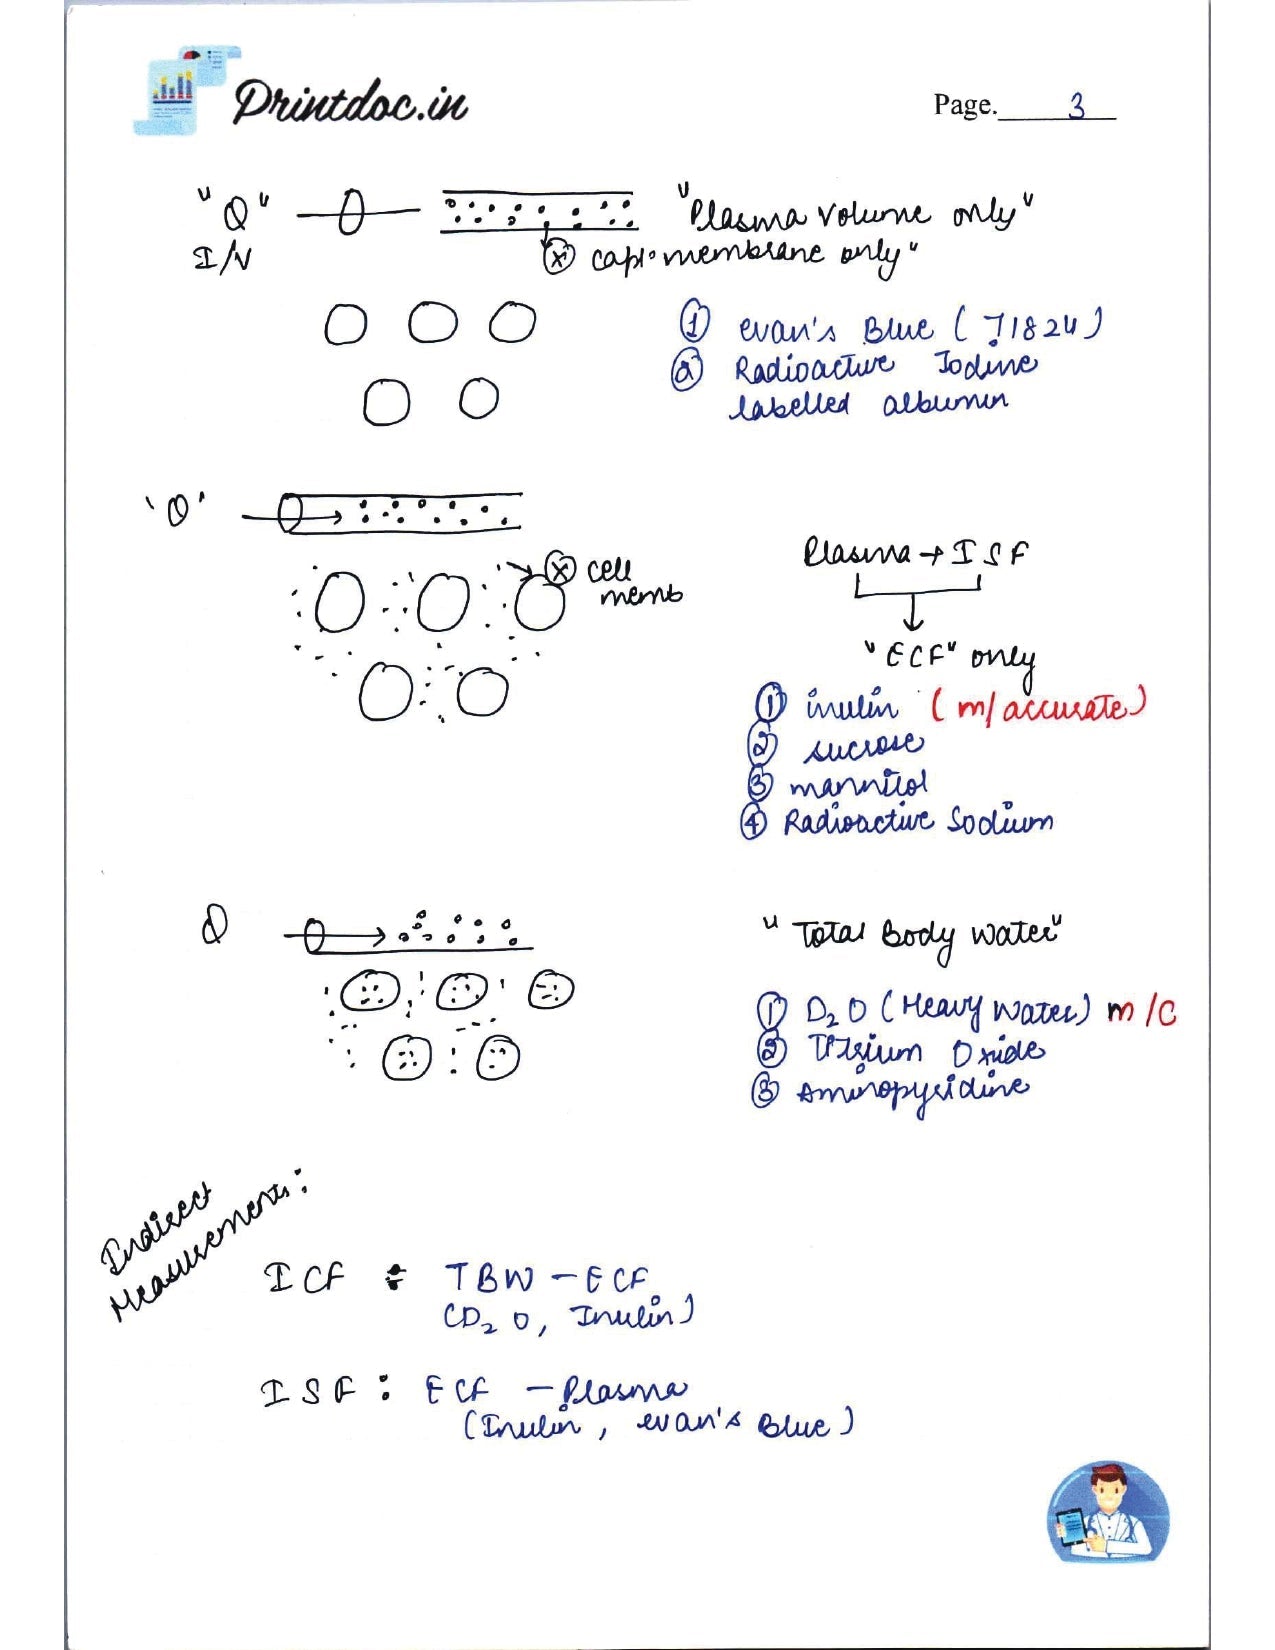 Printdoc.in
Page. 3
"Q" "Plasma volume only"
I/V (x) cap. membrane only"
① evan's Blue (T1824)
② Radioactive Iodine
labelled albumin
'Q'
Plasma → ISF
(x) cell
memb
"ECF" only
① inulin (m/accurate)
② sucrose
③ mannitol
④ Radioactive Sodium
Q "Total Body water"
① D₂O (Heavy water) m/c
② Tritium Oxide
③ Aminopyridine
Indirect
Measurements:
ICF : TBW - ECF
(D₂O, Inulin)
ISF : ECF - Plasma
(Inulin, evan's Blue)